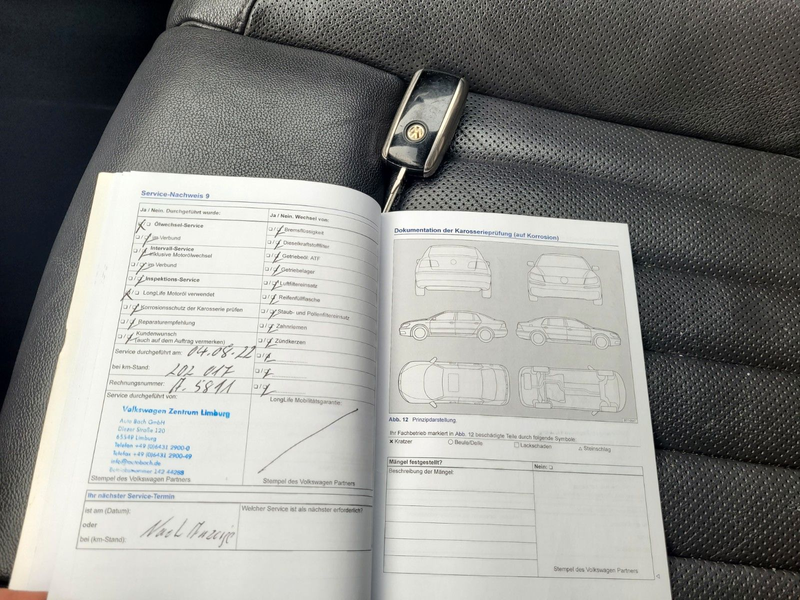 Service-Nachweis 9
Ja / Nein. Durchgeführt wurde:
Ölwechsel-Service
im Verbund
Intervall-Service
inklusive Motorölwechsel
im Verbund
Inspektions-Service
LongLife Motoröl verwendet
Korrosionsschutz der Karosserie prüfen
Reparaturempfehlung
Kundenwunsch
(auch auf dem Auftrag vermerken)
Service durchgeführt am: 04.08.22
bei km-Stand: 202 017
Rechnungsnummer: A. 5811
Service durchgeführt von:
Volkswagen Zentrum Limburg
Auto Bach GmbH
Diezer Straße 120
65549 Limburg
Telefon +49 (0)6431 2900-0
Telefax +49 (0)6431 2900-49
info@autobach.de
Stempel des Volkswagen Partners
Ja / Nein. Wechsel von:
Bremsflüssigkeit
Dieselkraftstofffilter
Getriebeöl, ATF
Getriebelager
Luftfiltereinsatz
Reifenfüllflasche
Staub- und Pollenfiltereinsatz
Zahnriemen
Zündkerzen
LongLife Mobilitätsgarantie:
Stempel des Volkswagen Partners
Ihr nächster Service-Termin
ist am (Datum):
oder
bei (km-Stand):
Nach Anzeige
Welcher Service ist als nächster erforderlich?
Dokumentation der Karosserieprüfung (auf Korrosion)
Abb. 12 Prinzipdarstellung.
Ihr Fachbetrieb markiert in Abb. 12 beschädigte Teile durch folgende Symbole:
x Kratzer
○ Beule/Delle
□ Lackschaden
△ Steinschlag
Mängel festgestellt?
Nein: ❑
Beschreibung der Mängel:
Stempel des Volkswagen Partners